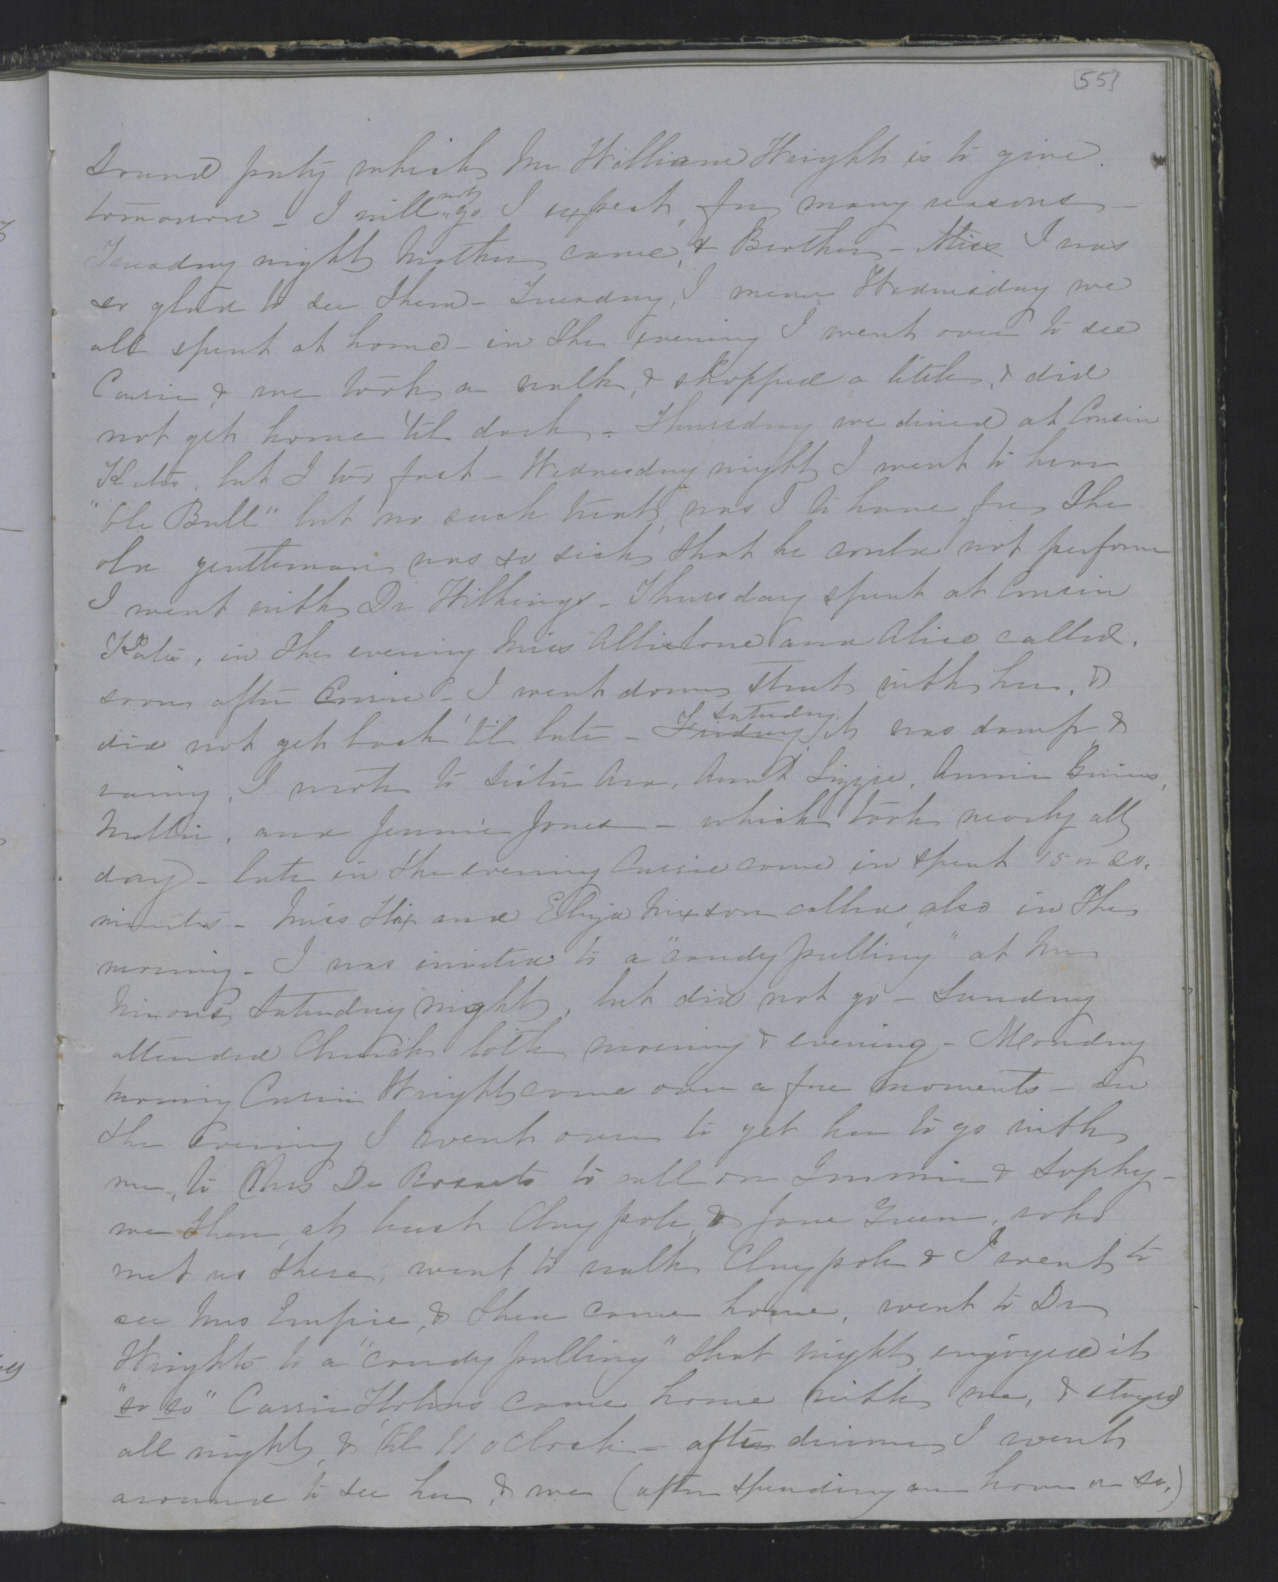 55
Sound party which Mr William Wright is to give
tomorrow - I will not go I expect, for many reasons -
Tuesday night Mother came, & Brother - Miss I was
so glad to see them - Tuesday, I mean Wednesday we
all spent at home - in the evening I went over to see
Cassie & we took a walk, & shopped a little, & did
not get home 'til dark - Thursday we dined at Cousin
Kate's, but I too fast - Wednesday night I went to hear
"Ole Bull" but no such treat, was I to have for the
old gentleman was so sick that he could not perform
I went with Dr Wilkings - Thursday spent at Cousin
Kate's, in the evening Miss Allistone and Alice called,
soon after Cassie - I went down street with her, &
did not get back 'til late - Friday Saturday it was damp &
rainy, I wrote to Sister Ann, Aunt Lizzie, Annie
Mollie, and Jennie Jones - which took nearly all
day - late in the evening Cassie came in spent 15 or 20,
minutes - Miss Hix and Eliza Nixson called also in the
morning - I was invited to a "candy pulling" at Mrs
Nixons Saturday night, but did not go - Sunday
attended Church both morning & evening - Monday
morning Cassie Wright came over a few moments - in
the evening I went over to get her to go with
me, to Mrs De Rossets to call on & Sophy -
we then, at least Claypole & Jane Green, who
met us there, went to walk Claypole & I went to
see Mrs Empie, & then came home, went to Dr
Wrights to a "candy pulling" that night enjoyed it
"so so" Cassie Holmes came home with me, & stayed
all night, & 'til 11 oClock - after dinner I went
around to see her, & we (after spending an hour or so,)